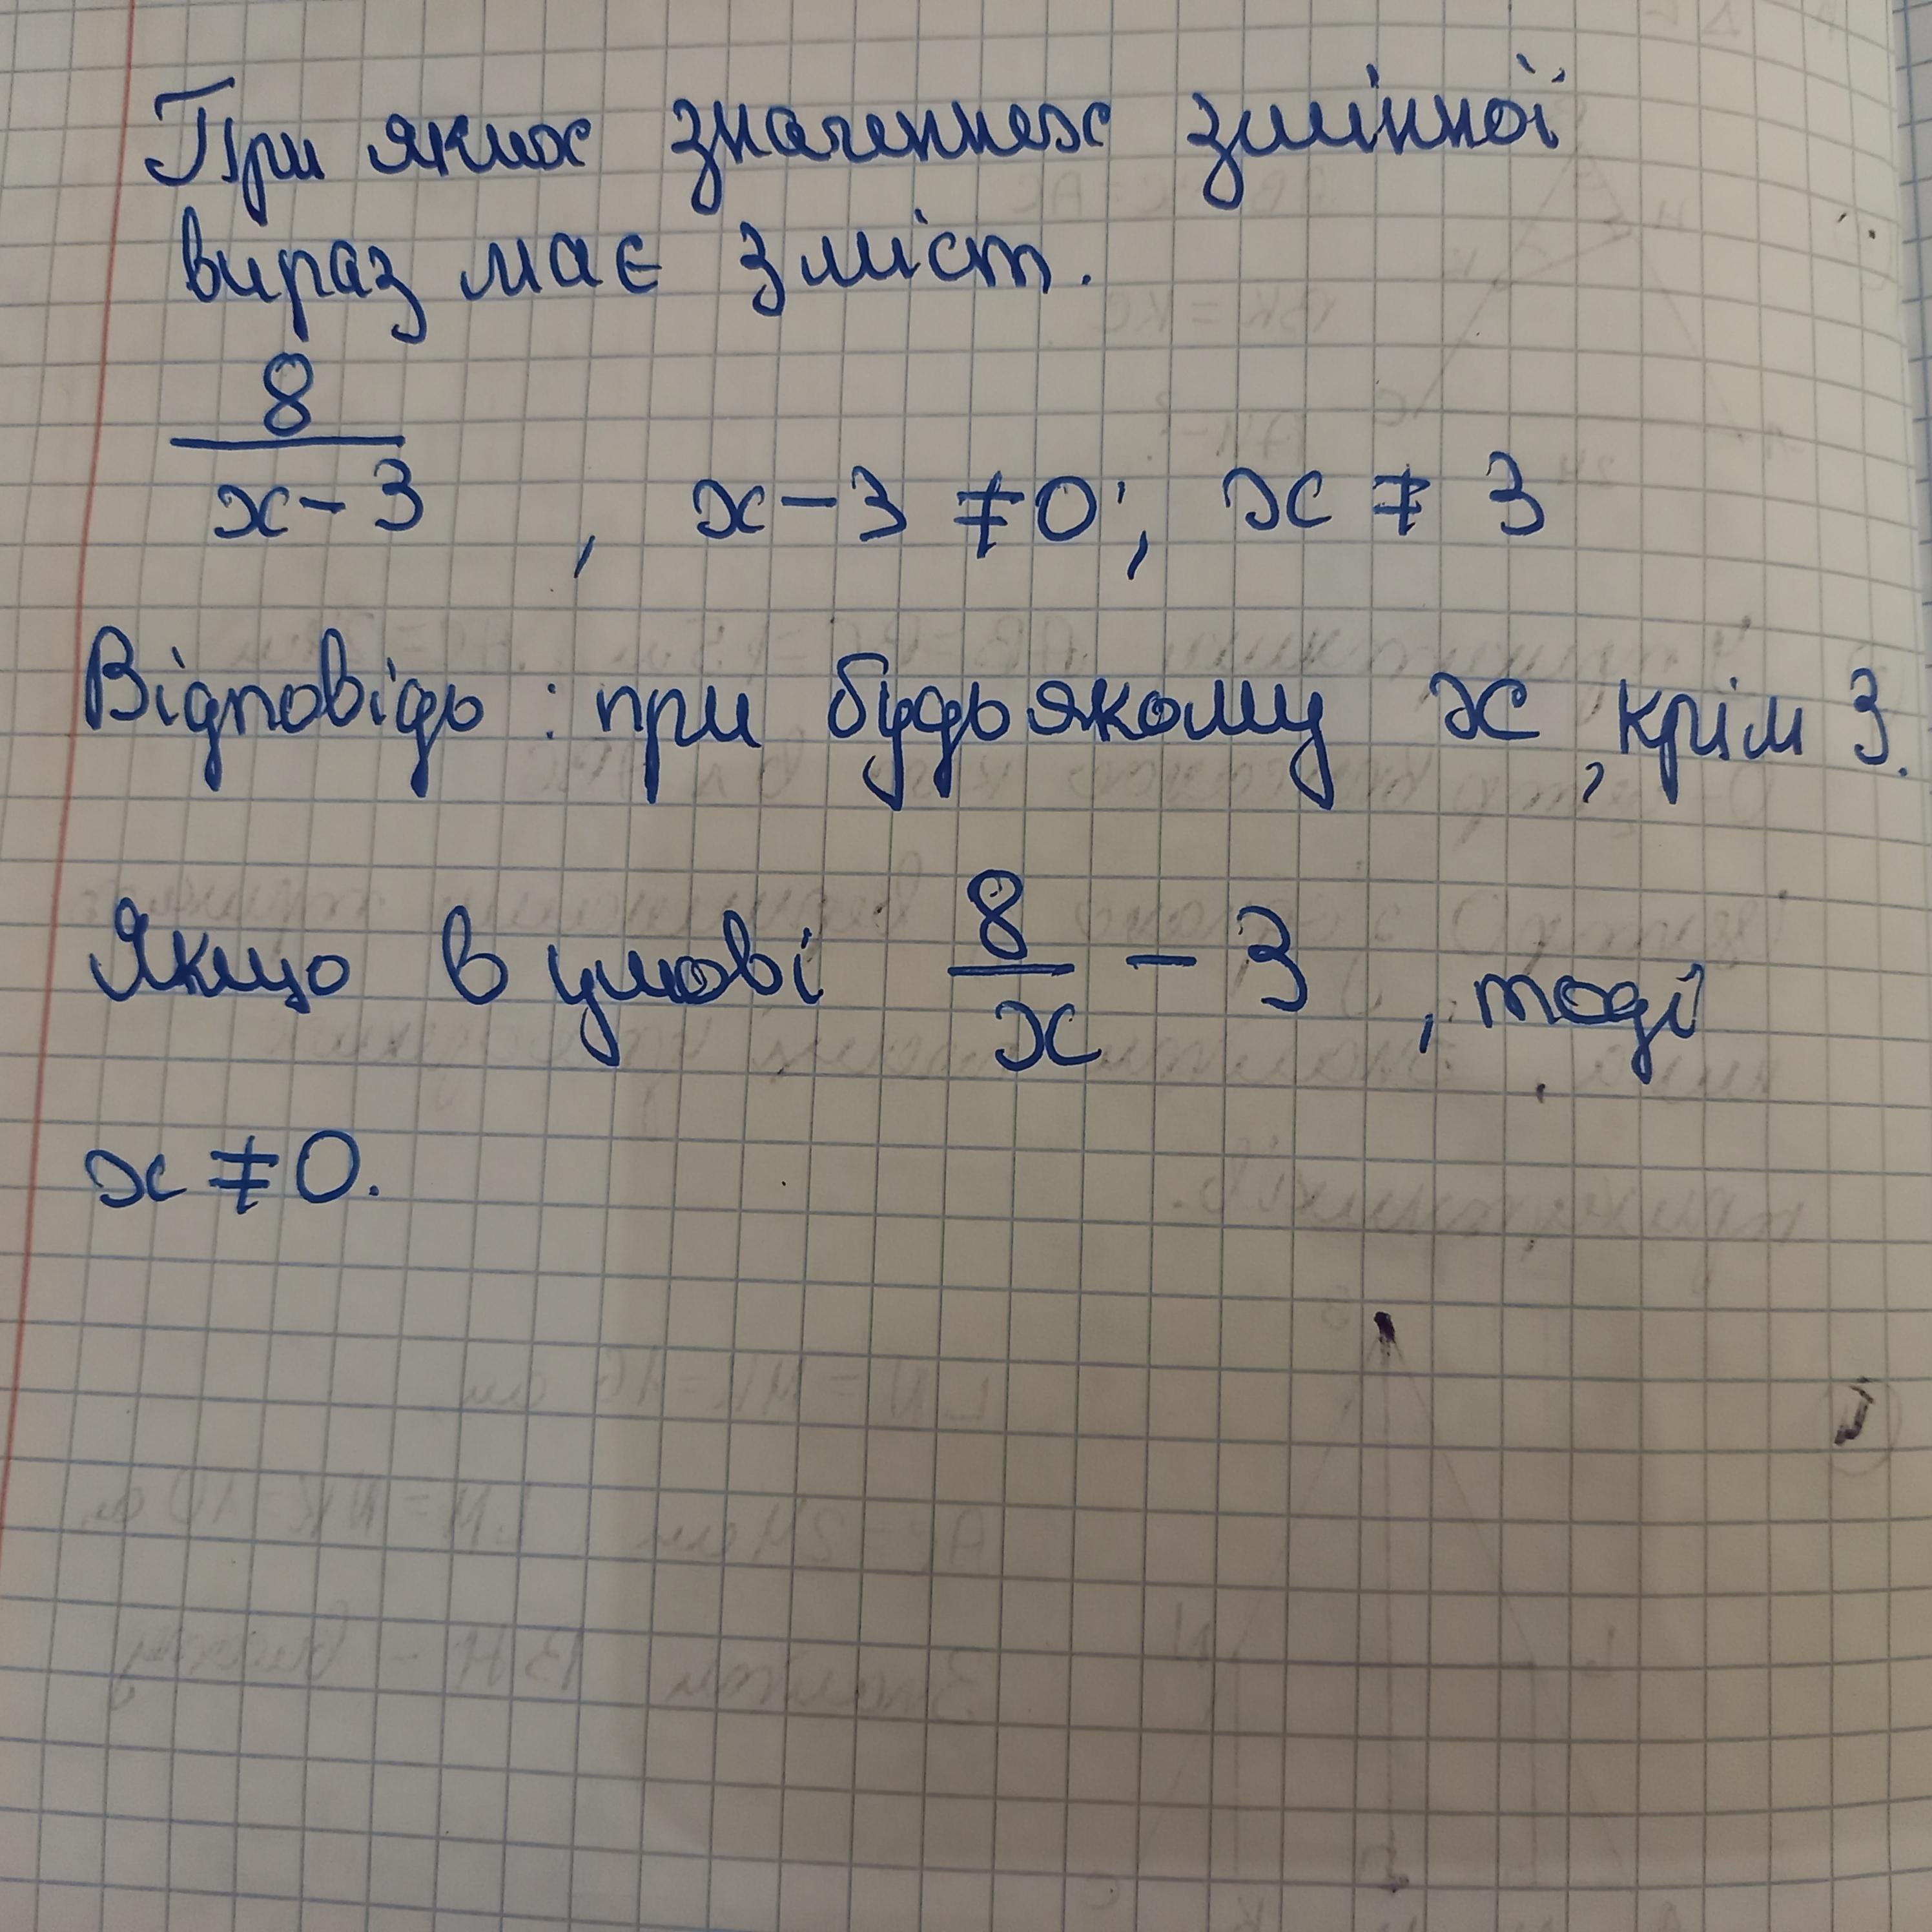 При яких значеннях змінної
вираз має зміст.
8/(x-3) , x-3≠0; x≠3
Відповідь: при будьякому x, крім 3.
Якщо в умові 8/x - 3, тоді
x≠0.